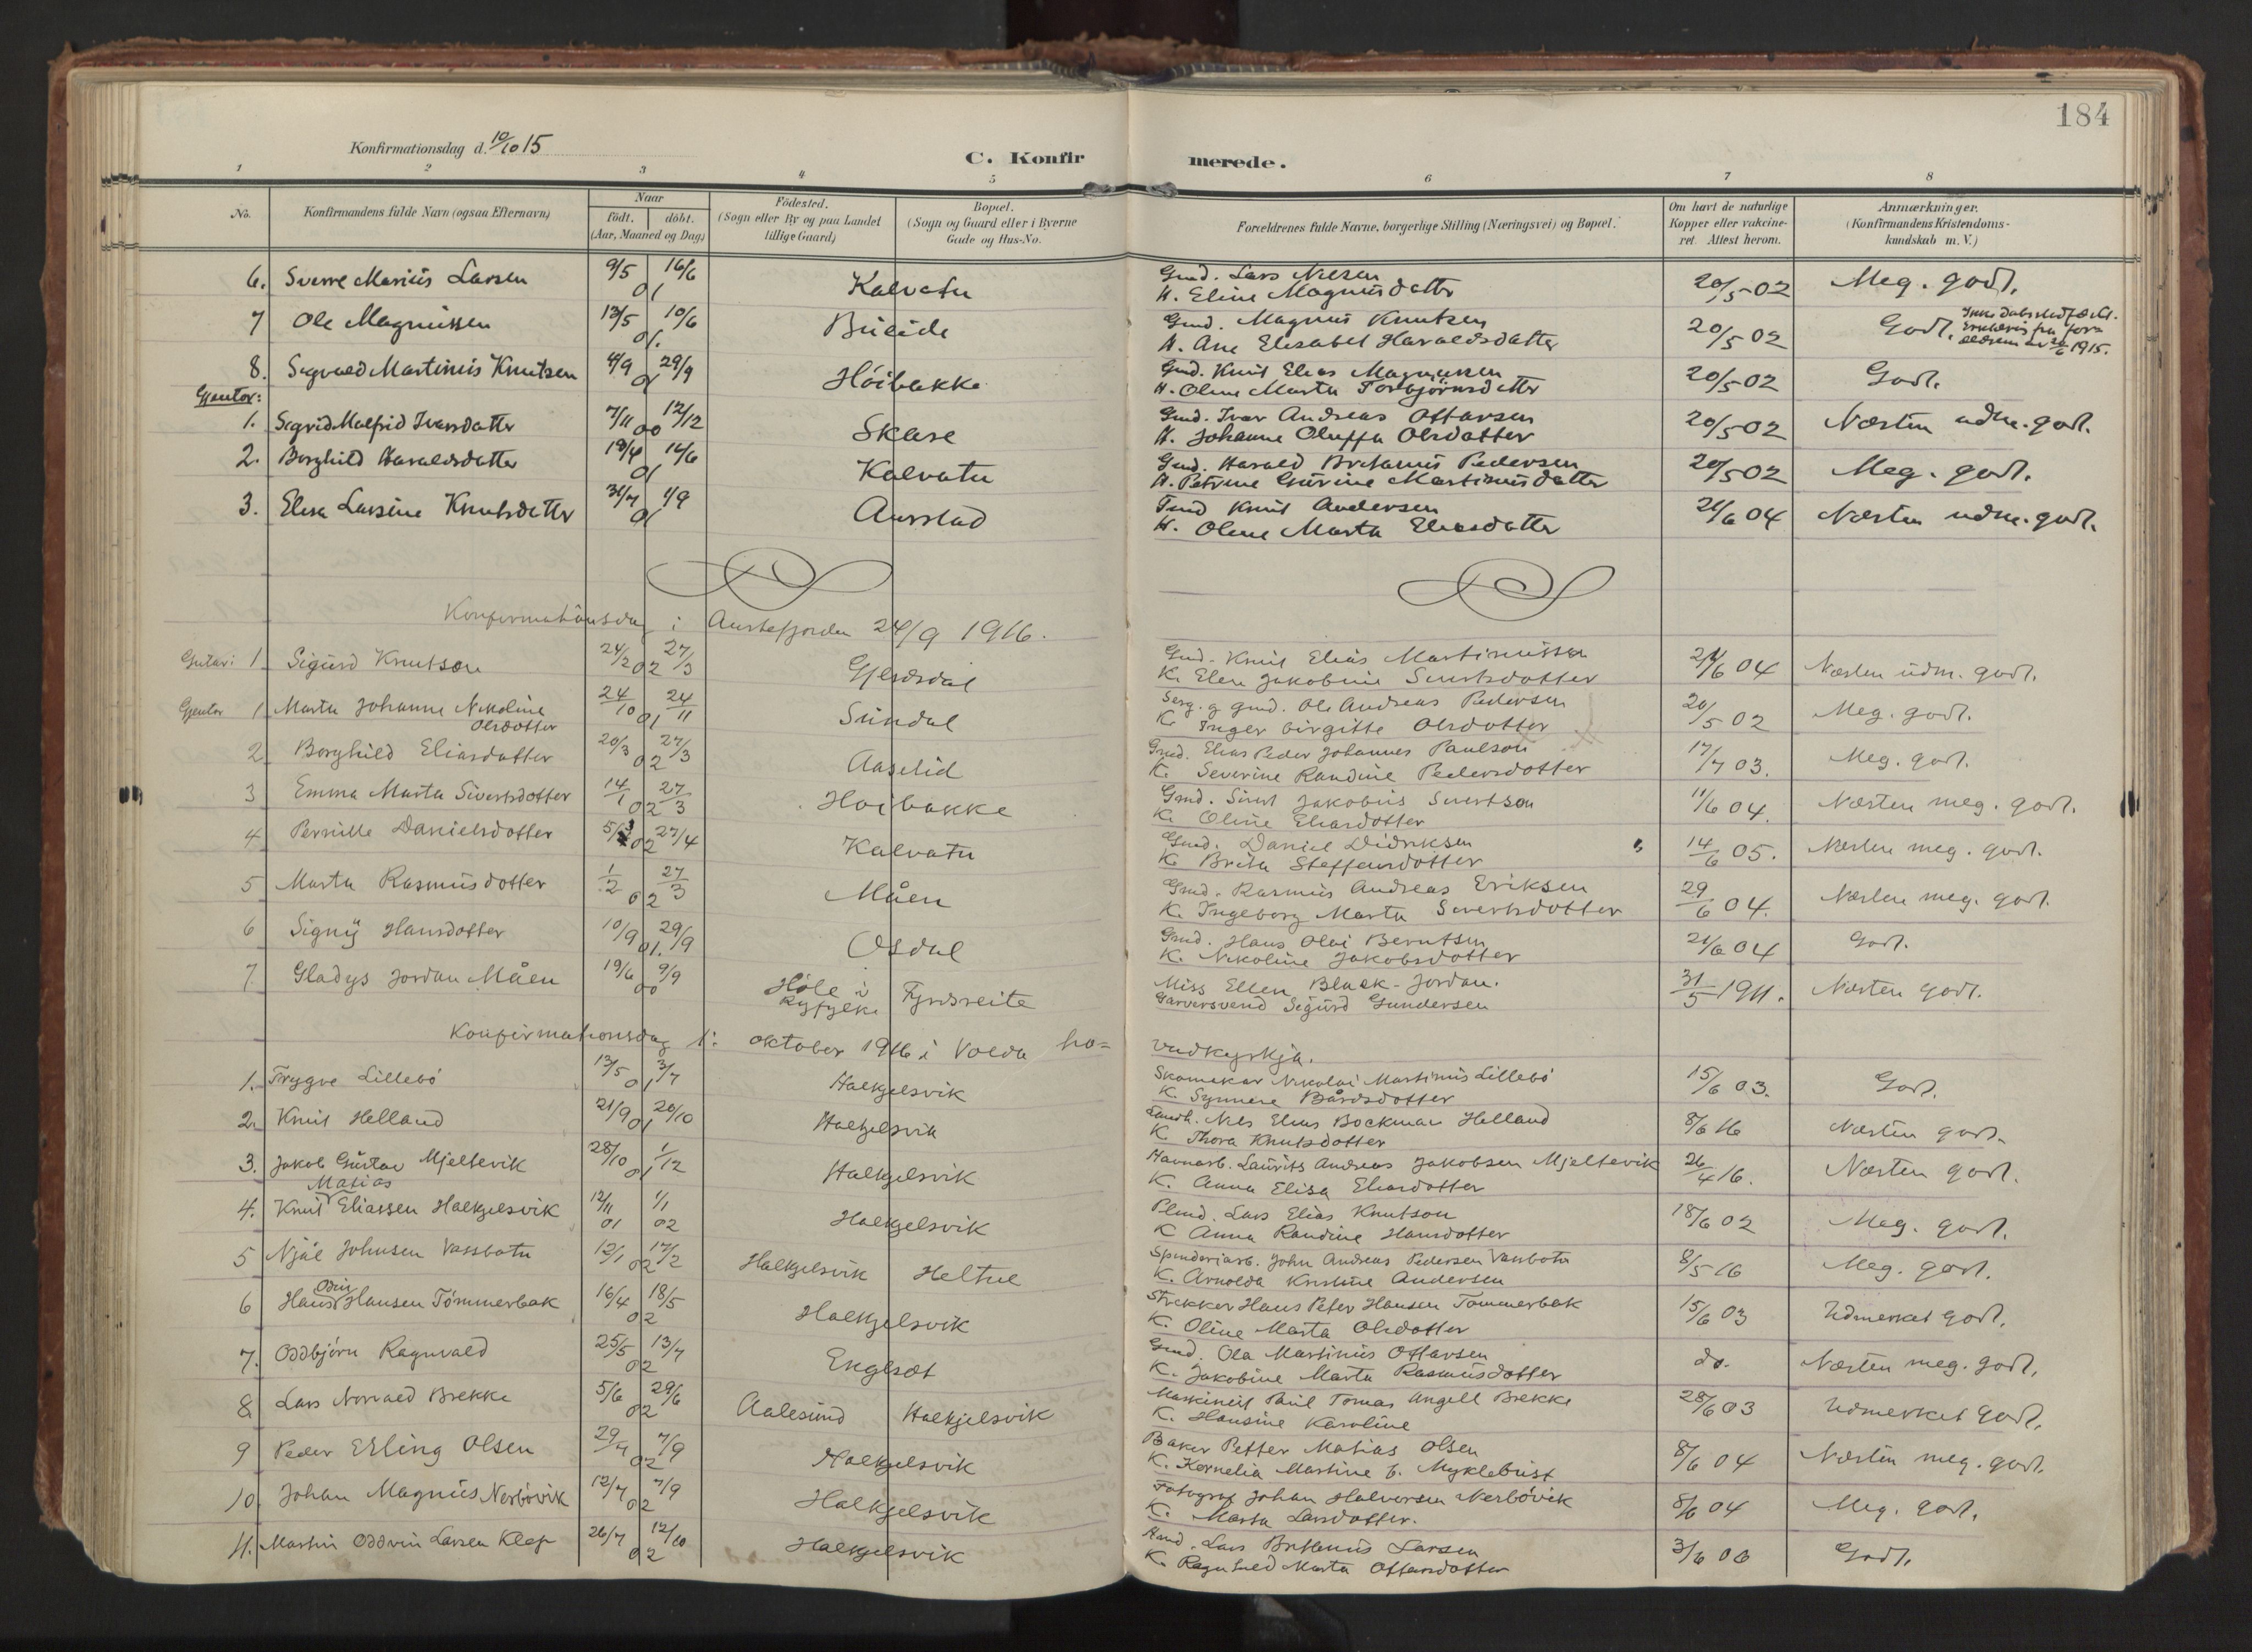 184
Konfirmationsdag d. 10/10 15
C. Konfirmerede.
1 2 3 4 5 6 7 8
No. Konfirmandens fulde Navn (ogsaa Efternavn) Naar födt. döbt. (Aar, Maaned og Dag) Födested. (Sogn eller By og paa Landet tillige Gaard) Bopæl. (Sogn og Gaard eller i Byerne Gade og Hus-No. Forældrenes fulde Navne, borgerlige Stilling (Næringsvei) og Bopæl. Om havt de naturlige Kopper eller vakcineret. Attest herom. Anmærkninger. (Konfirmandens Kristendomskundskab m. V.)
6. Sverre Marius Larsen 9/5 16/6 01 Kalvatn Gmd. Lars Nilsen 20/5 02 Meg. godt.
H. Eline Magnusdatter
7 Ole Magnussen 13/5 10/6 01. Bueide Gmd. Magnus Knutsen 20/5 02 Godt.
H. Ane Elisabet Haraldsdatter
8. Sigvald Martinus Knutsen 4/9 29/9 01 Höibakke Gmd. Knut Elias Magnussen 20/5 02 Godt.
H. Oline Marta Torbjörnsdatter
Gjentor:
1. Sigrid Malfrid Ivarsdatter 7/11 12/12 00 Sklise Gmd. Ivar Andreas Ottarsen 20/5 02 Næsten udm. godt.
H. Johanne Oluffa Olsdatter
2. Borghild Haraldsdatter 19/4 16/6 01 Kalvatn Gmd. Harald Pedersen 20/5 02 Meg. godt.
H. Petrine Gurine Martinusdatter
3. Elisa Larsine Knutsdatter 31/7 1/9 01 Aurstad Knut Andersen 21/6 04 Næsten udm. godt.
H. Oline Marta Eliasdatter
Konfirmationsdag i Austefjorden 24/9 1916.
Gutar: 1 Sigurd Knutson 24/2 27/3 02 Gjerdsdal Gmd. Knut Elias Martinussen 21/6 04 Næsten udm. godt.
K. Elen Jakobine Sivertsdotter
Gjentor 1 Marta Johanne Nikoline Olsdotter 24/10 24/11 01 Sundal Serg. og gmd. Ole Andreas Pedersen 20/5 02 Meg. godt.
K. Inger birgitte Olsdotter
2 Borghild Eliasdatter 20/3 27/3 02 Aaselid Gmd. Elias Peder Johannes Paulson 17/7 03. Meg. godt.
K. Severine Randine Pedersdotter
3 Emma Marta Sivertsdotter 14/1 27/3 02 Hoibakke Gmd. Sivert Jakobus Sivertson 11/6 04. Næsten meg. godt.
K. Oline Eliasdotter
4 Pernille Danielsdotter 5/3 27/4 02 Kalvatn Gmd. Daniel Didriksen 14/6 05. Næsten meg. godt.
K. Brita Steffensdotter
5 Marta Rasmusdotter 1/2 27/3 02 Måen Gmd. Rasmus Andreas Eriksen 29/6 04. Næsten meg. godt.
K. Ingeborg Marta Sivertsdotter
6 Signy Hansdotter 10/9 29/9 01. Osdal Gmd. Hans Olai Berntsen 21/6 04 Godt.
K. Nikoline Jakobsdotter
7. Gladys Jordan Måen 19/6 9/9 00 Höle i Ryfylke Fyrdsreite Miss Ellen Black-Jordan. 31/5 1911. Næsten godt.
Garversvend Sigurd Gundersen
Konfirmationsdag 1: oktober 1916 i Volda hovudkyrkja.
1. Trygve Lillebö 13/5 3/7 01 Halkjelsvik Skomakar Nikolai Martinus Lillebö 15/6 03. Godt.
K. Synnere Bårdsdotter
2. Knut Helland 21/9 20/10 01 Halkjelsvik Landh. Nils Elias Bockman Helland 8/6 16 Næsten godt.
K. Thora Knutsdotter
3. Jakob Gustav Mjeltevik 28/10 1/12 01 Halkjelsvik Havnarb. Laurits Andreas Jakobsen Mjeltevik 26/4 16. Næsten godt.
K. Anna Elisa Eliasdotter
4. Knut Matias Eliassen Halkjelsvik 12/11 01 1/1 02 Halkjelsvik Plmd. Lars Elias Knutson 18/6 02 Meg. godt.
K Anna Randine Hansdotter
5 Njål Johnsen Vassbotn 12/1 17/2 02 Halkjelsvik Heltne Spinneriarb. John Andreas Pedersen Vassbotn 8/5 16 Meg. godt.
K. Arnolda Kristine Andersen
6 Hans Odin Hansen Tömmerbak 16/4 18/5 02 Halkjelsvik Strekker Hans Peter Hansen Tommerbak 15/6 03 Udmerket godt.
K. Oline Marta Olsdotter
7. Oddbjörn Ragnvald 25/5 13/7 02 Englset Gmd. Ola Martinus Ottarsen do. Næsten meg. godt.
K. Jakobine Marta Rasmusdotter
8. Lars Norvald Brekke 5/6 29/6 02 Aalesund Halkjelsvik Maskinist Paul Tomas Angell Brekke 28/6 03 Udmerket godt.
K. Hansine Karoline
9 Peder Erling Olsen 29/7 7/9 02 Halkjelsvik Baker Petter Matias Olsen 8/6 04 Næsten meg. godt.
K. Kornelia Martine f. Myklebust
10. Johan Magnus Nerbövik 12/7 7/9 02 Halkjelsvik Fotograf Johan Halvorsen Nerbövik 8/6 04 Meg. godt.
K. Marta Larsdotter.
11. Martin Oddvin Larsen Klep 26/7 12/10 02 Halkjelsvik Lars Larsen 3/6 06 Godt.
K. Ragnhild Marta Ottarsdotter